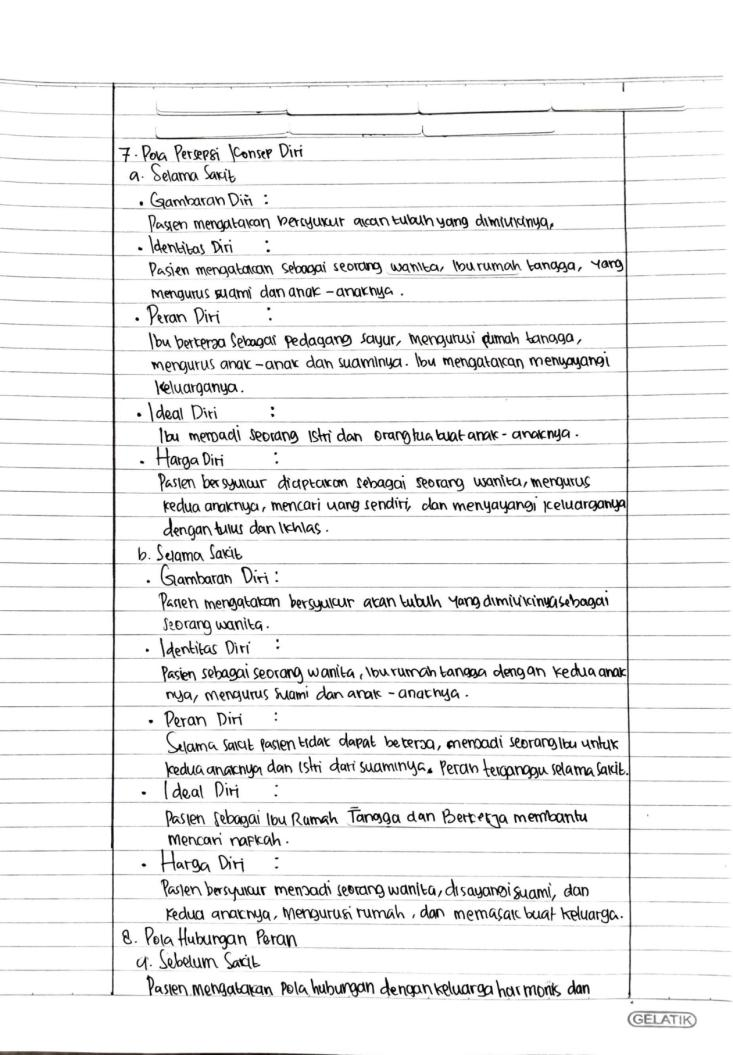 7. Pola Persepsi Konsep Diri
a. Selama Sakit
• Gambaran Diri :
Pasien mengatakan bersyukur akan tubuh yang dimilikinya.
• Identitas Diri :
Pasien mengatakan sebagai seorang wanita, Ibu rumah tangga, yang
mengurus suami dan anak-anaknya.
• Peran Diri :
Ibu berkerja sebagai pedagang sayur, mengurusi rumah tanaga,
mengurus anak-anak dan suaminya. Ibu mengatakan menyayangi
keluarganya.
• Ideal Diri :
Ibu menjadi seorang Istri dan orang tua buat anak-anaknya.
• Harga Diri :
Pasien bersyukur diciptakan sebagai seorang wanita, mengurus
kedua anaknya, mencari uang sendiri, dan menyayangi keluarganya
dengan tulus dan Ikhlas.
b. Selama Sakit
• Gambaran Diri :
Pasien mengatakan bersyukur akan tubuh yang dimilikinya sebagai
seorang wanita.
• Identitas Diri :
Pasien sebagai seorang wanita, Ibu rumah tangga dengan kedua anak
nya, mengurus suami dan anak-anaknya.
• Peran Diri :
Selama sakit pasien tidak dapat bekerja, menjadi seorang Ibu untuk
kedua anaknya dan Istri dari suaminya. Peran terganggu selama sakit.
• Ideal Diri :
Pasien sebagai Ibu Rumah Tangga dan Berkerja membantu
mencari nafkah.
• Harga Diri :
Pasien bersyukur menjadi seorang wanita, disayangi suami, dan
kedua anaknya, Mengurusi rumah, dan memasak buat keluarga.
8. Pola Hubungan Peran
a. Sebelum Sakit
Pasien mengatakan Pola hubungan dengan keluarga harmonis dan
GELATIK